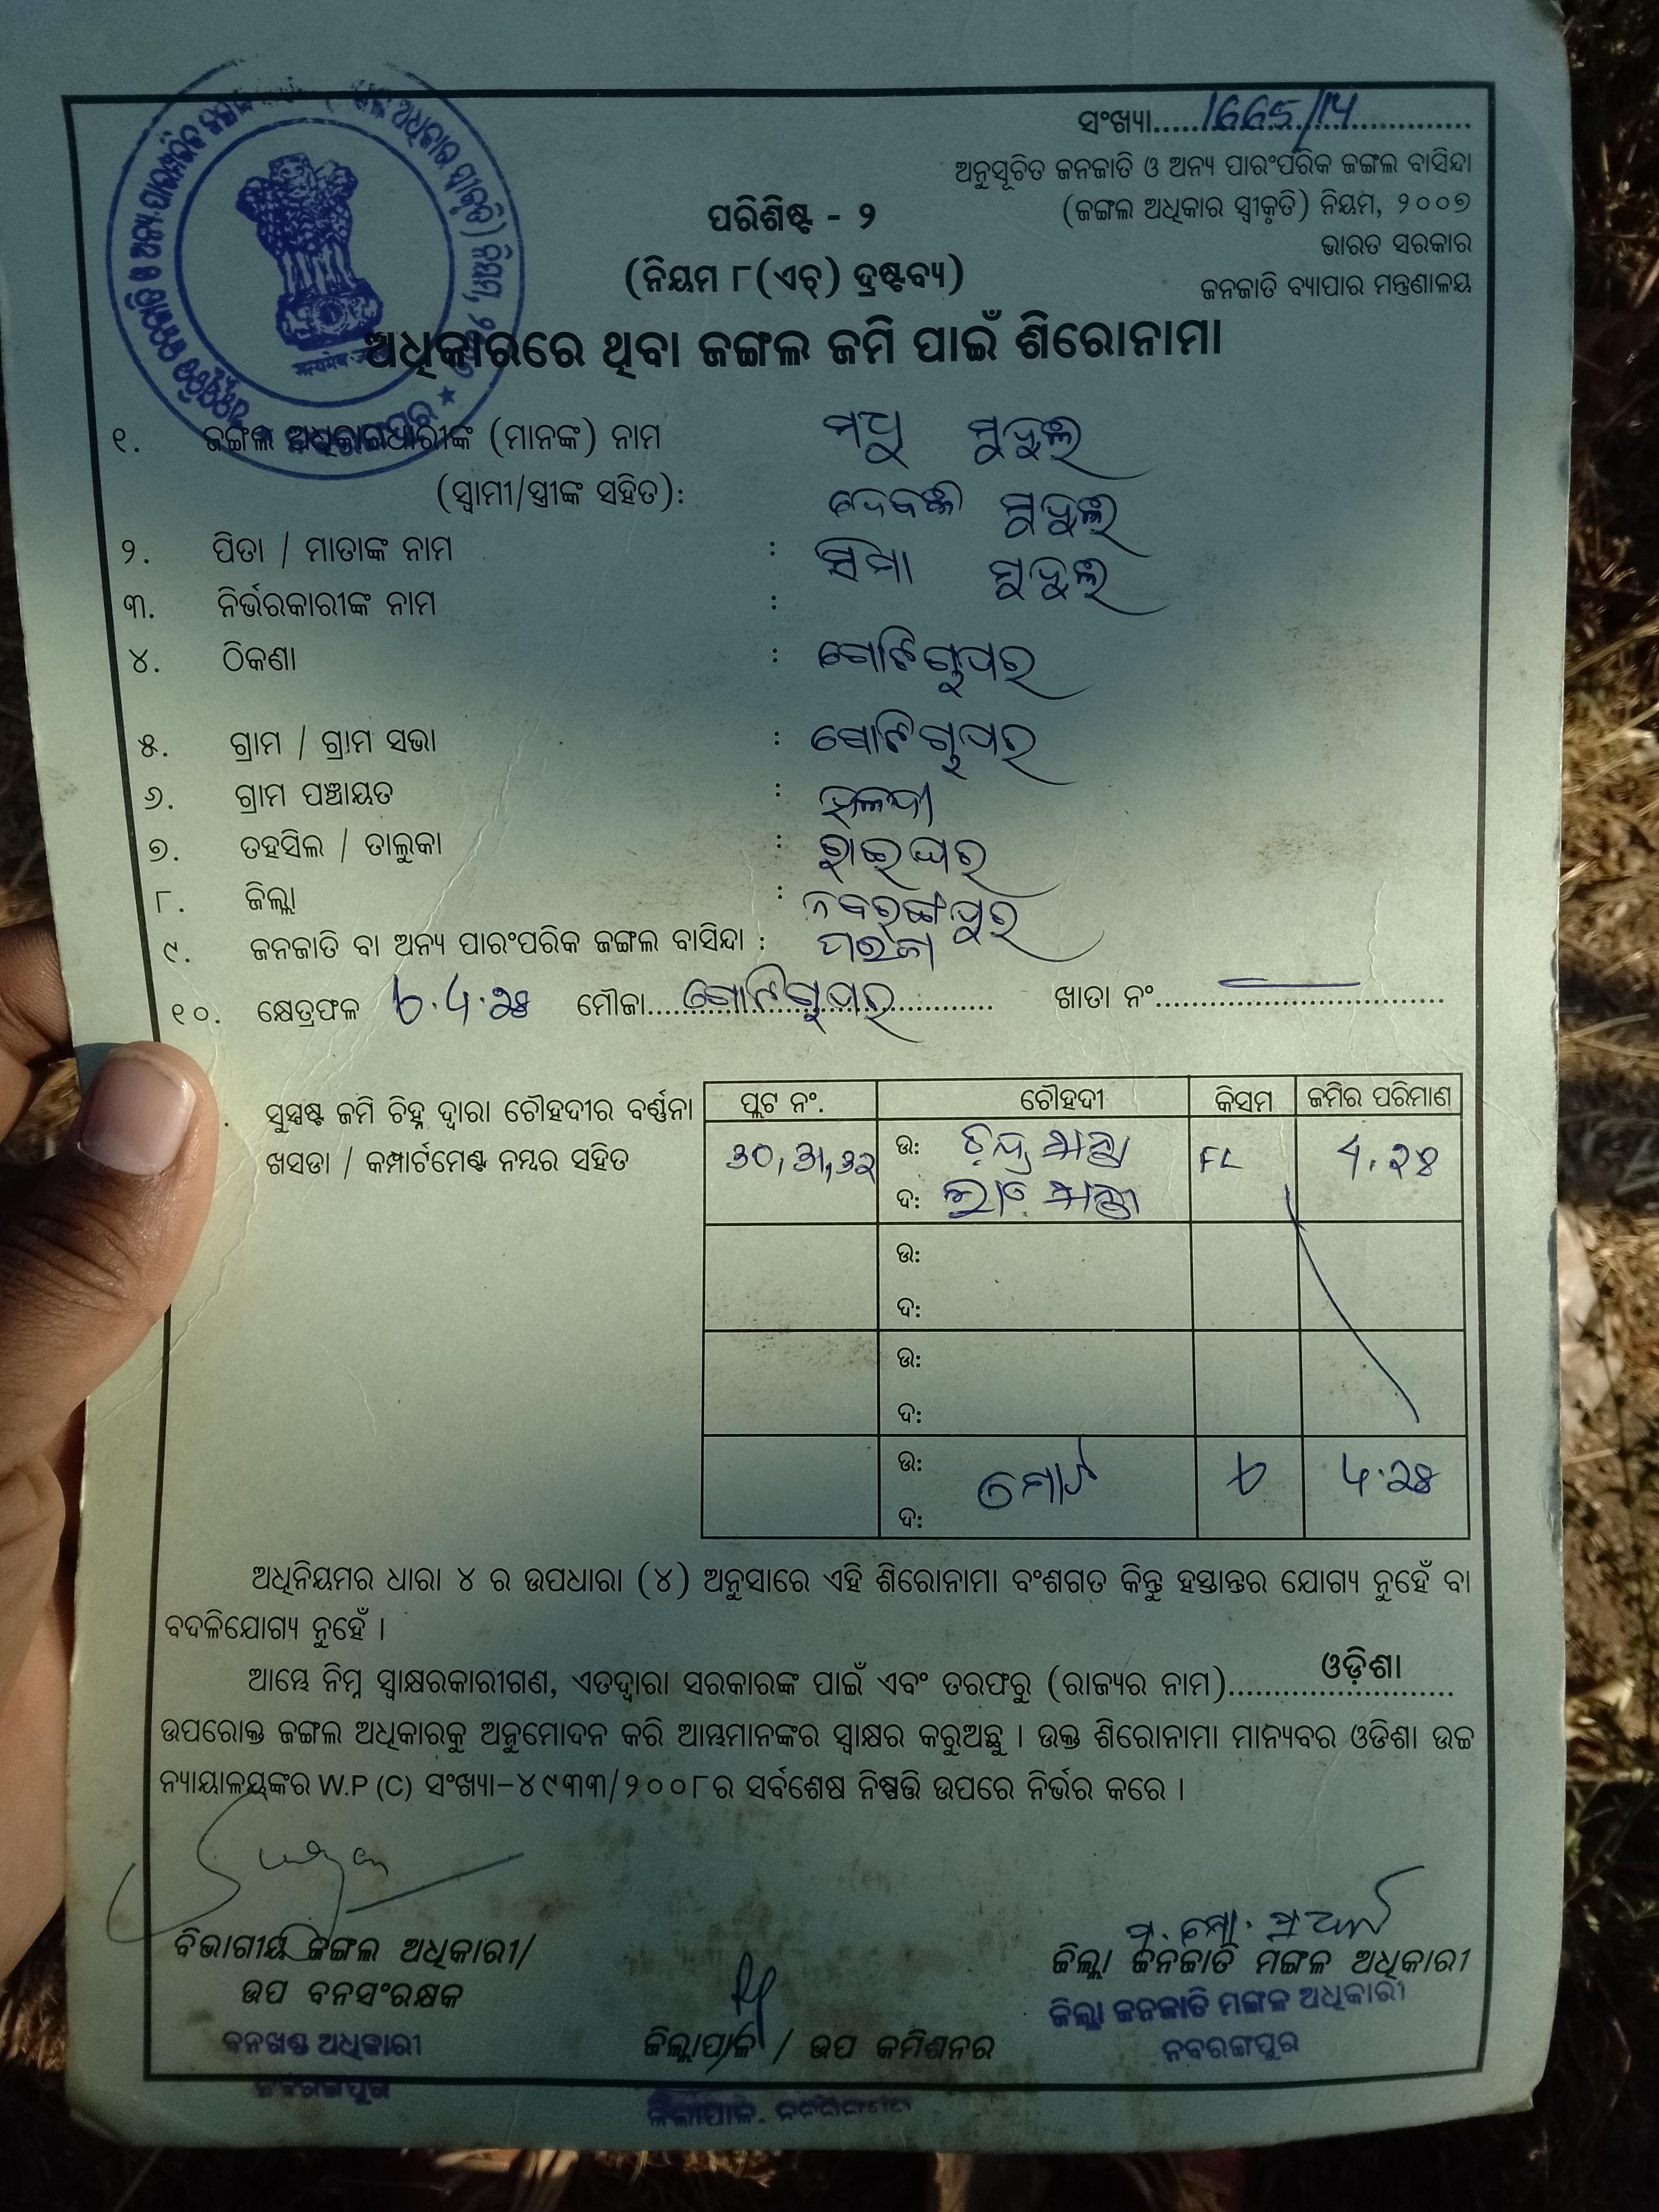 ସଂଖ୍ୟା..... 1665/14
ଅନୁସୂଚିତ ଜନଜାତି ଓ ଅନ୍ୟ ପାରଂପରିକ ଜଙ୍ଗଲ ବାସିନ୍ଦା
(ଜଙ୍ଗଲ ଅଧିକାର ସ୍ବୀକୃତି) ନିୟମ, ୨୦୦୭
ଭାରତ ସରକାର
ଜନଜାତି ବ୍ୟାପାର ମନ୍ତ୍ରଣାଳୟ
ପରିଶିଷ୍ଟ - ୨
(ନିୟମ ୮(ଏଚ୍) ଦ୍ରଷ୍ଟବ୍ୟ)
ଅଧିକାରରେ ଥିବା ଜଙ୍ଗଲ ଜମି ପାଇଁ ଶିରୋନାମା
୧. ଜଙ୍ଗଲ ଅଧିକାରଧାରୀଙ୍କ (ମାନଙ୍କ) ନାମ ମଧୁ ମୁଦୁଲି
(ସ୍ବାମୀ/ସ୍ତ୍ରୀଙ୍କ ସହିତ): ମୁଦୁଲି
୨. ପିତା / ମାତାଙ୍କ ନାମ : ମୁଦୁଲି
୩. ନିର୍ଭରକାରୀଙ୍କ ନାମ :
୪. ଠିକଣା :
୫. ଗ୍ରାମ / ଗ୍ରାମ ସଭା :
୬. ଗ୍ରାମ ପଞ୍ଚାୟତ : ହଳଦୀ
୭. ତହସିଲ / ତାଲୁକା : ରାଇଘର
୮. ଜିଲ୍ଲା : ନବରଙ୍ଗପୁର
୯. ଜନଜାତି ବା ଅନ୍ୟ ପାରଂପରିକ ଜଙ୍ଗଲ ବାସିନ୍ଦା : ପରଜା
୧୦. କ୍ଷେତ୍ରଫଳ ମୌଜା..... ଖାତା ନଂ.....
ସୁସ୍ପଷ୍ଟ ଜମି ଚିହ୍ନ ଦ୍ୱାରା ଚୌହଦୀର ବର୍ଣ୍ଣନା
ଖସଡା / କମ୍ପାର୍ଟମେଣ୍ଟ ନମ୍ବର ସହିତ
ପ୍ଲଟ ନଂ. ଚୌହଦୀ କିସମ ଜମିର ପରିମାଣ
୩୦, ୩୧, ୩୨ ଉ: FL
ଦ:
ଉ:
ଦ:
ଉ:
ଦ:
ଉ: ମୋଟ
ଦ:
ଅଧିନିୟମର ଧାରା ୪ ର ଉପଧାରା (୪) ଅନୁସାରେ ଏହି ଶିରୋନାମା ବଂଶଗତ କିନ୍ତୁ ହସ୍ତାନ୍ତର ଯୋଗ୍ୟ ନୁହେଁ ବା
ବଦଳିଯୋଗ୍ୟ ନୁହେଁ ।
ଆମ୍ଭେ ନିମ୍ନ ସ୍ୱାକ୍ଷରକାରୀଗଣ, ଏତଦ୍ୱାରା ସରକାରଙ୍କ ପାଇଁ ଏବଂ ତରଫରୁ (ରାଜ୍ୟର ନାମ)..... ଓଡ଼ିଶା
ଉପରୋକ୍ତ ଜଙ୍ଗଲ ଅଧିକାରକୁ ଅନୁମୋଦନ କରି ଆମ୍ଭମାନଙ୍କର ସ୍ୱାକ୍ଷର କରୁଅଛୁ । ଉକ୍ତ ଶିରୋନାମା ମାନ୍ୟବର ଓଡିଶା ଉଚ୍ଚ
ନ୍ୟାୟାଳୟଙ୍କର W.P (C) ସଂଖ୍ୟା-୪୯୩୩/୨୦୦୮ର ସର୍ବଶେଷ ନିଷ୍ପତ୍ତି ଉପରେ ନିର୍ଭର କରେ ।
ବିଭାଗୀୟ ଜଙ୍ଗଲ ଅଧିକାରୀ/
ଉପ ବନସଂରକ୍ଷକ
ବନଖଣ୍ଡ ଅଧିକାରୀ
ନବରଙ୍ଗପୁର
ଜିଲ୍ଲାପାଳ / ଉପ କମିଶନର
ଜିଲ୍ଲାପାଳ, ନବରଙ୍ଗପୁର
ଜିଲ୍ଲା ଜନଜାତି ମଙ୍ଗଳ ଅଧିକାରୀ
ଜିଲ୍ଲା ଜନଜାତି ମଙ୍ଗଳ ଅଧିକାରୀ
ନବରଙ୍ଗପୁର